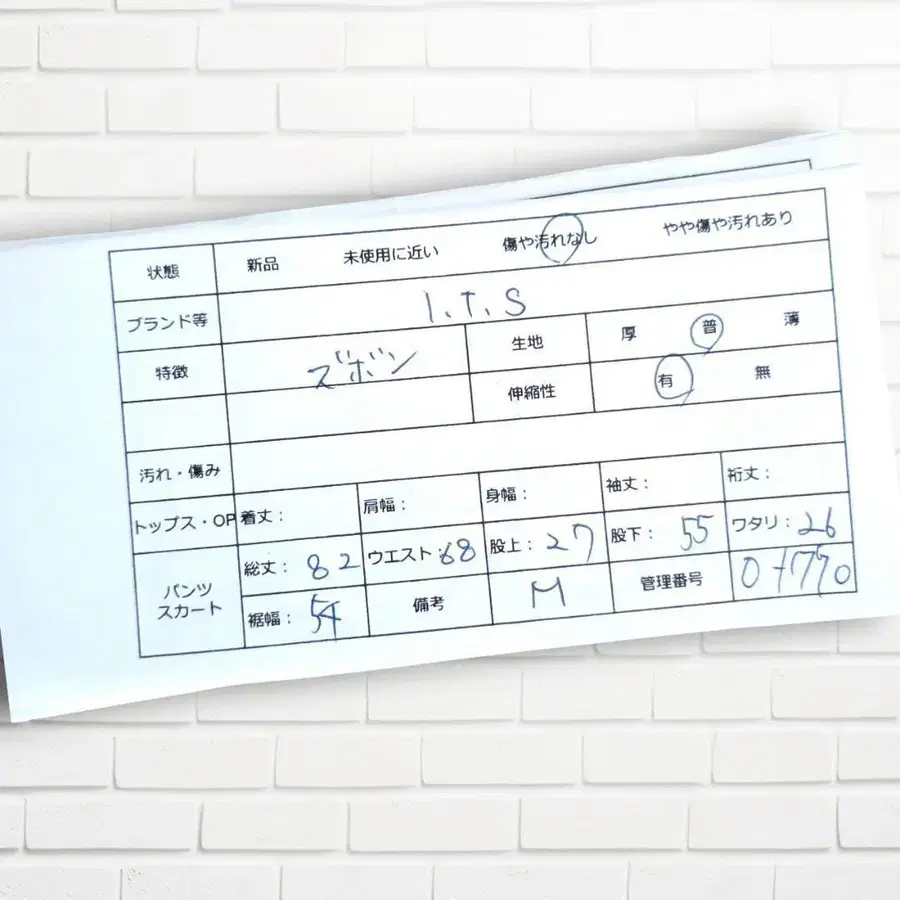 状態 新品 未使用に近い 傷や汚れなし やや傷や汚れあり
ブランド等 I.T.S
特徴 ズボン 生地 厚 普 薄
伸縮性 有 無
汚れ・傷み
トップス・OP 着丈: 肩幅: 身幅: 袖丈: 裄丈:
パンツ スカート 総丈: 82 ウエスト:68 股上: 27 股下: 55 ワタリ: 26
裾幅: 54 備考 M 管理番号